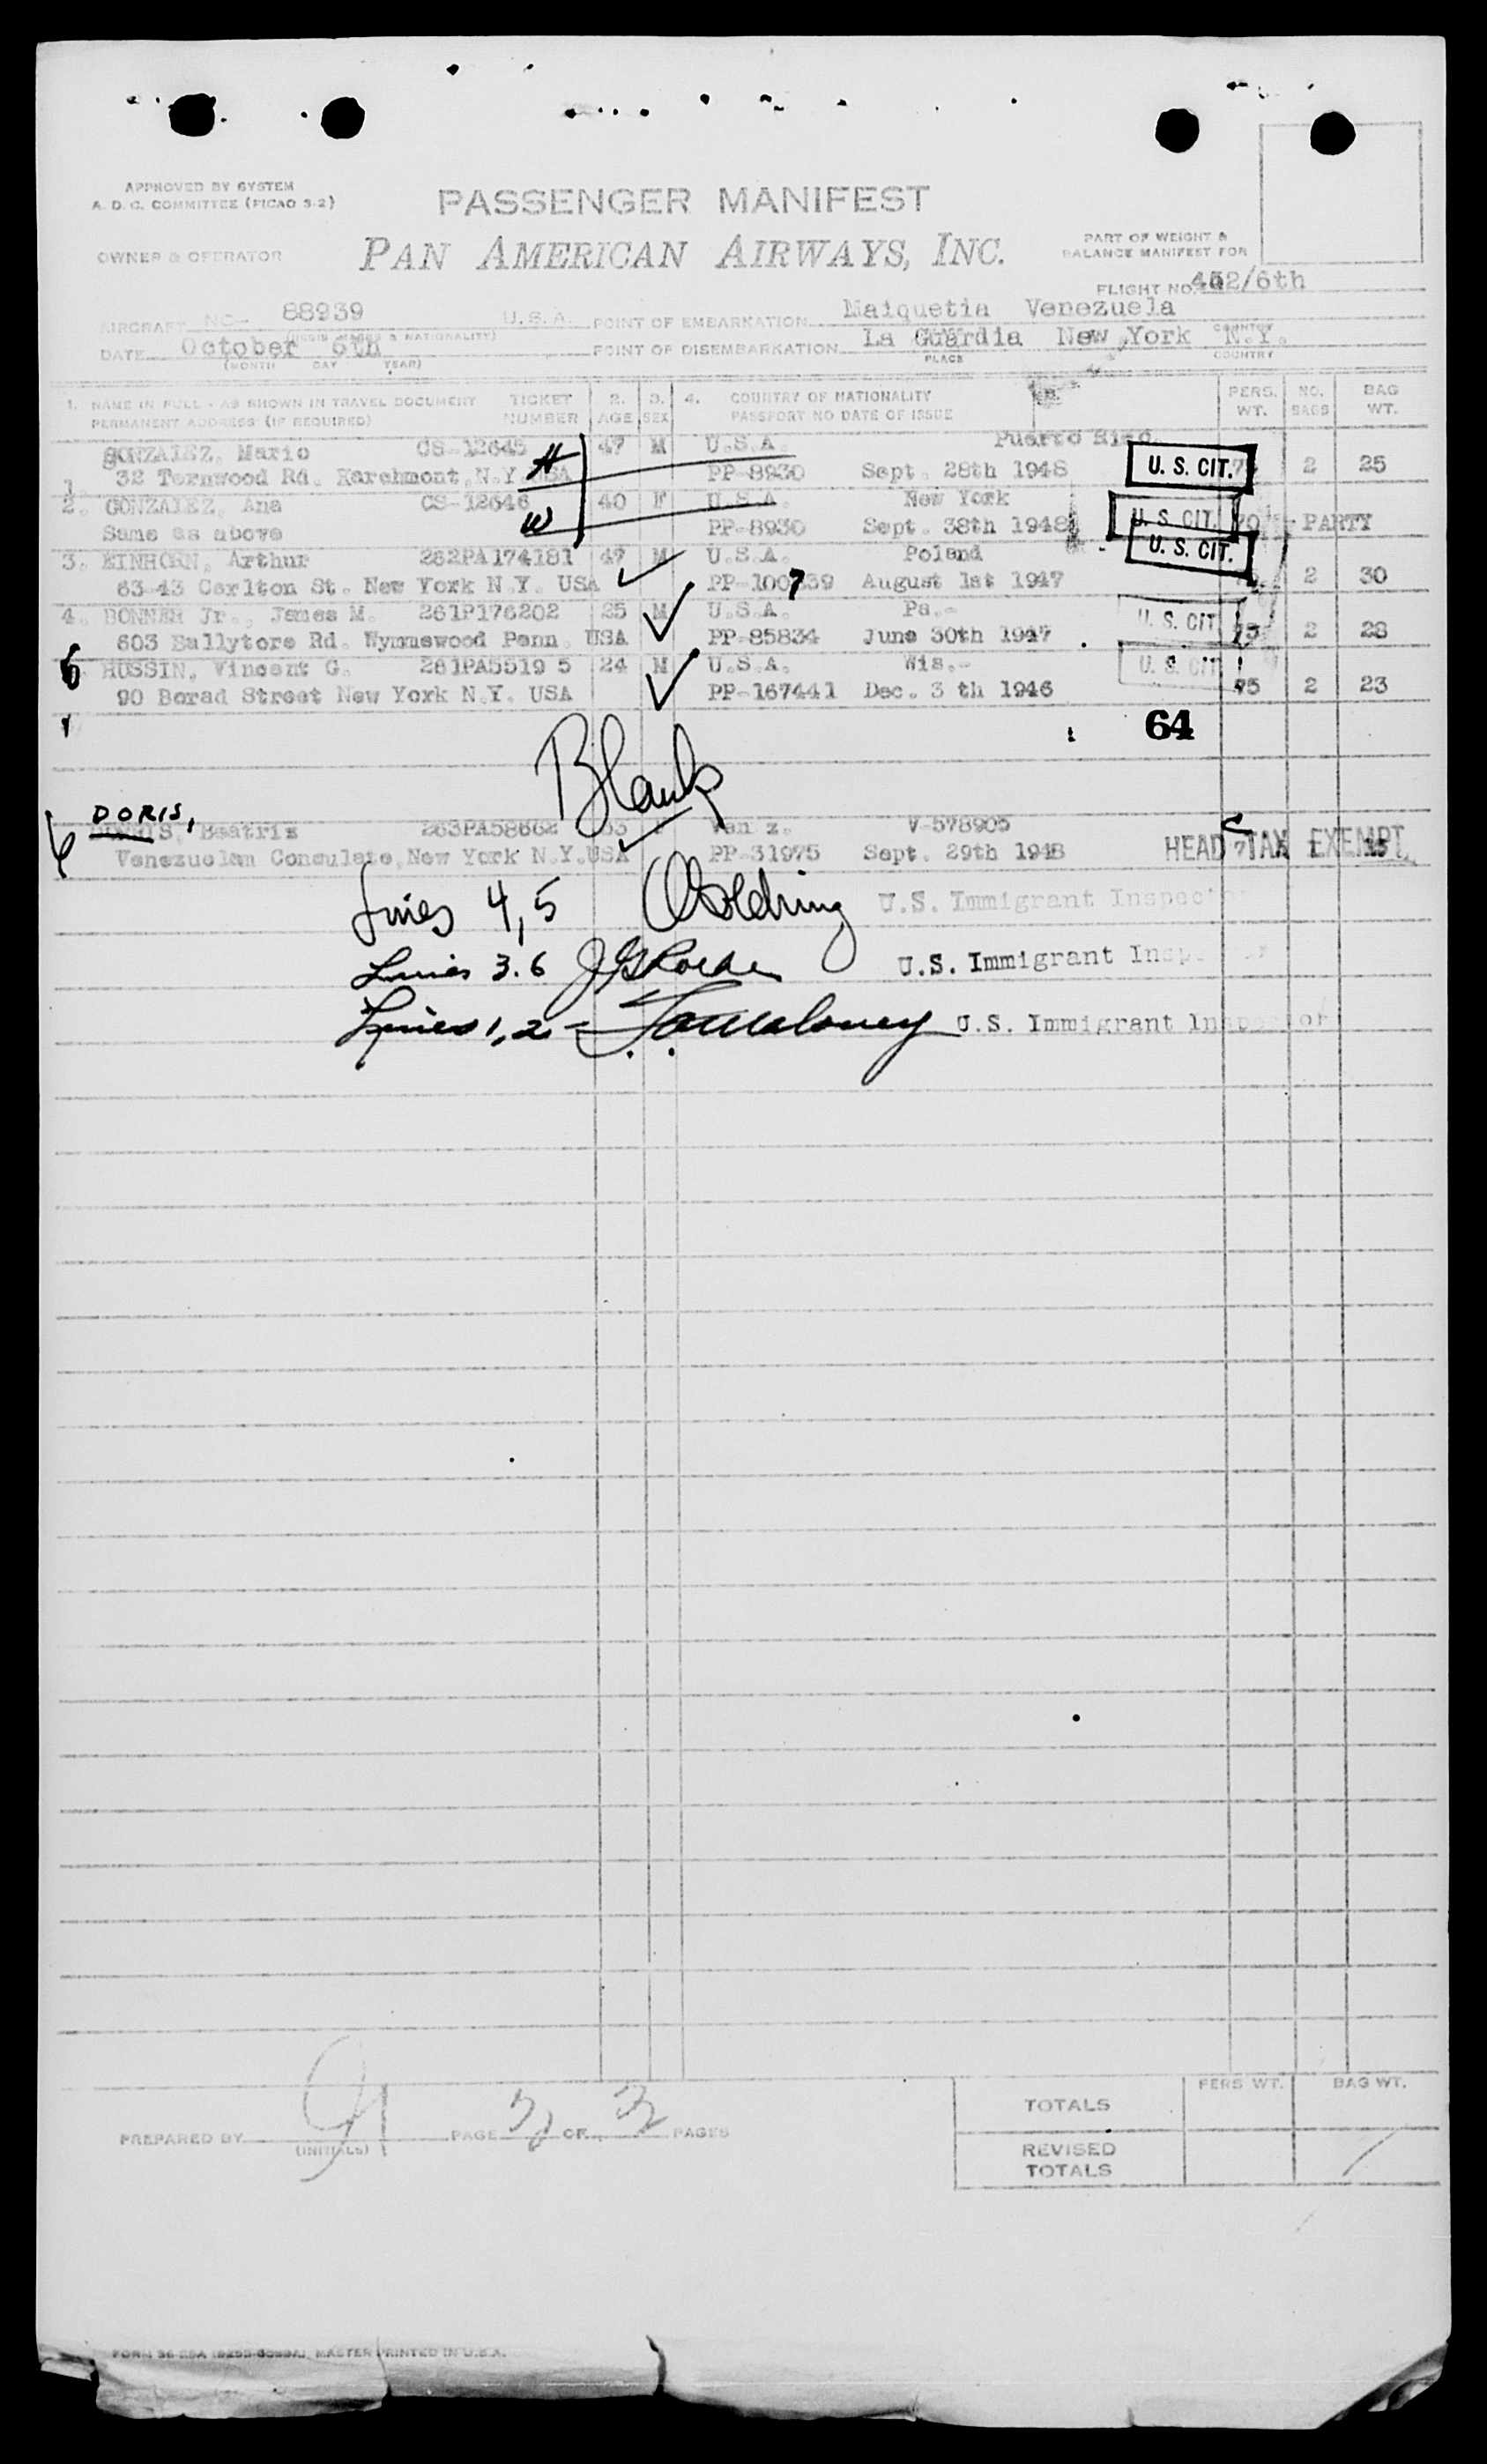 APPROVED BY SYSTEM
A. D. C. COMMITTEE (PICAO 3-2)
PASSENGER MANIFEST
OWNER & OPERATOR
PAN AMERICAN AIRWAYS, INC.
PART OF WEIGHT &
BALANCE MANIFEST FOR
FLIGHT NO. 452/6th
AIRCRAFT NC- 88939 U.S.A. POINT OF EMBARKATION Maiquetia Venezuela
DATE October 6th POINT OF DISEMBARKATION La Guardia New York N.Y.
(MONTH DAY YEAR) PLACE COUNTRY
1. NAME IN FULL - AS SHOWN IN TRAVEL DOCUMENT TICKET 2. 3. 4. COUNTRY OF NATIONALITY PERS. NO. BAG
PERMANENT ADDRESS (IF REQUIRED) NUMBER AGE SEX PASSPORT NO DATE OF ISSUE WT. BAGS WT.
GONZALEZ, Mario CS-12645 H 47 M U.S.A. Puerto Rico
1. 32 Ternwood Rd. Larchmont, N.Y. USA PP-8930 Sept. 28th 1948 U. S. CIT. 2 25
2. GONZALEZ, Ana CS-12646 40 F U.S.A. New York
Same as above W PP-8930 Sept. 38th 1948 U. S. CIT. 70 PARTY
3. EINHORN, Arthur 262PA174181 47 M U.S.A. Poland U. S. CIT.
63-43 Carlton St. New York N.Y. USA PP-100739 August 1st 1947 2 30
7
4. BONNER Jr., James M. 261P176202 25 M U.S.A. Pa.- U. S. CIT
603 Ballytore Rd. Wynnewood Penn. USA PP-85834 June 30th 1947 75 2 28
5 HUSSIN, Vincent G. 261PA5519 5 24 M U.S.A. Wis.- U. S. CIT
90 Borad Street New York N.Y. USA PP-167441 Dec. 3 th 1946 75 2 23
64
Blank
DORIS,
6 Beatriz 263PA58662 Ven z. V-578905
Venezuelan Consulate, New York N.Y. USA PP-31975 Sept. 29th 1948 HEAD TAX EXEMPT 15
Lines 4, 5 Goldring U.S. Immigrant Inspector
Lines 3. 6 U.S. Immigrant Inspector
Lines 1, 2 - Maloney U.S. Immigrant Inspector
PERS WT. BAG WT.
TOTALS
PREPARED BY (INITIALS) PAGE 3 OF 3 PAGES
REVISED
TOTALS
MASTER PRINTED IN U.S.A.